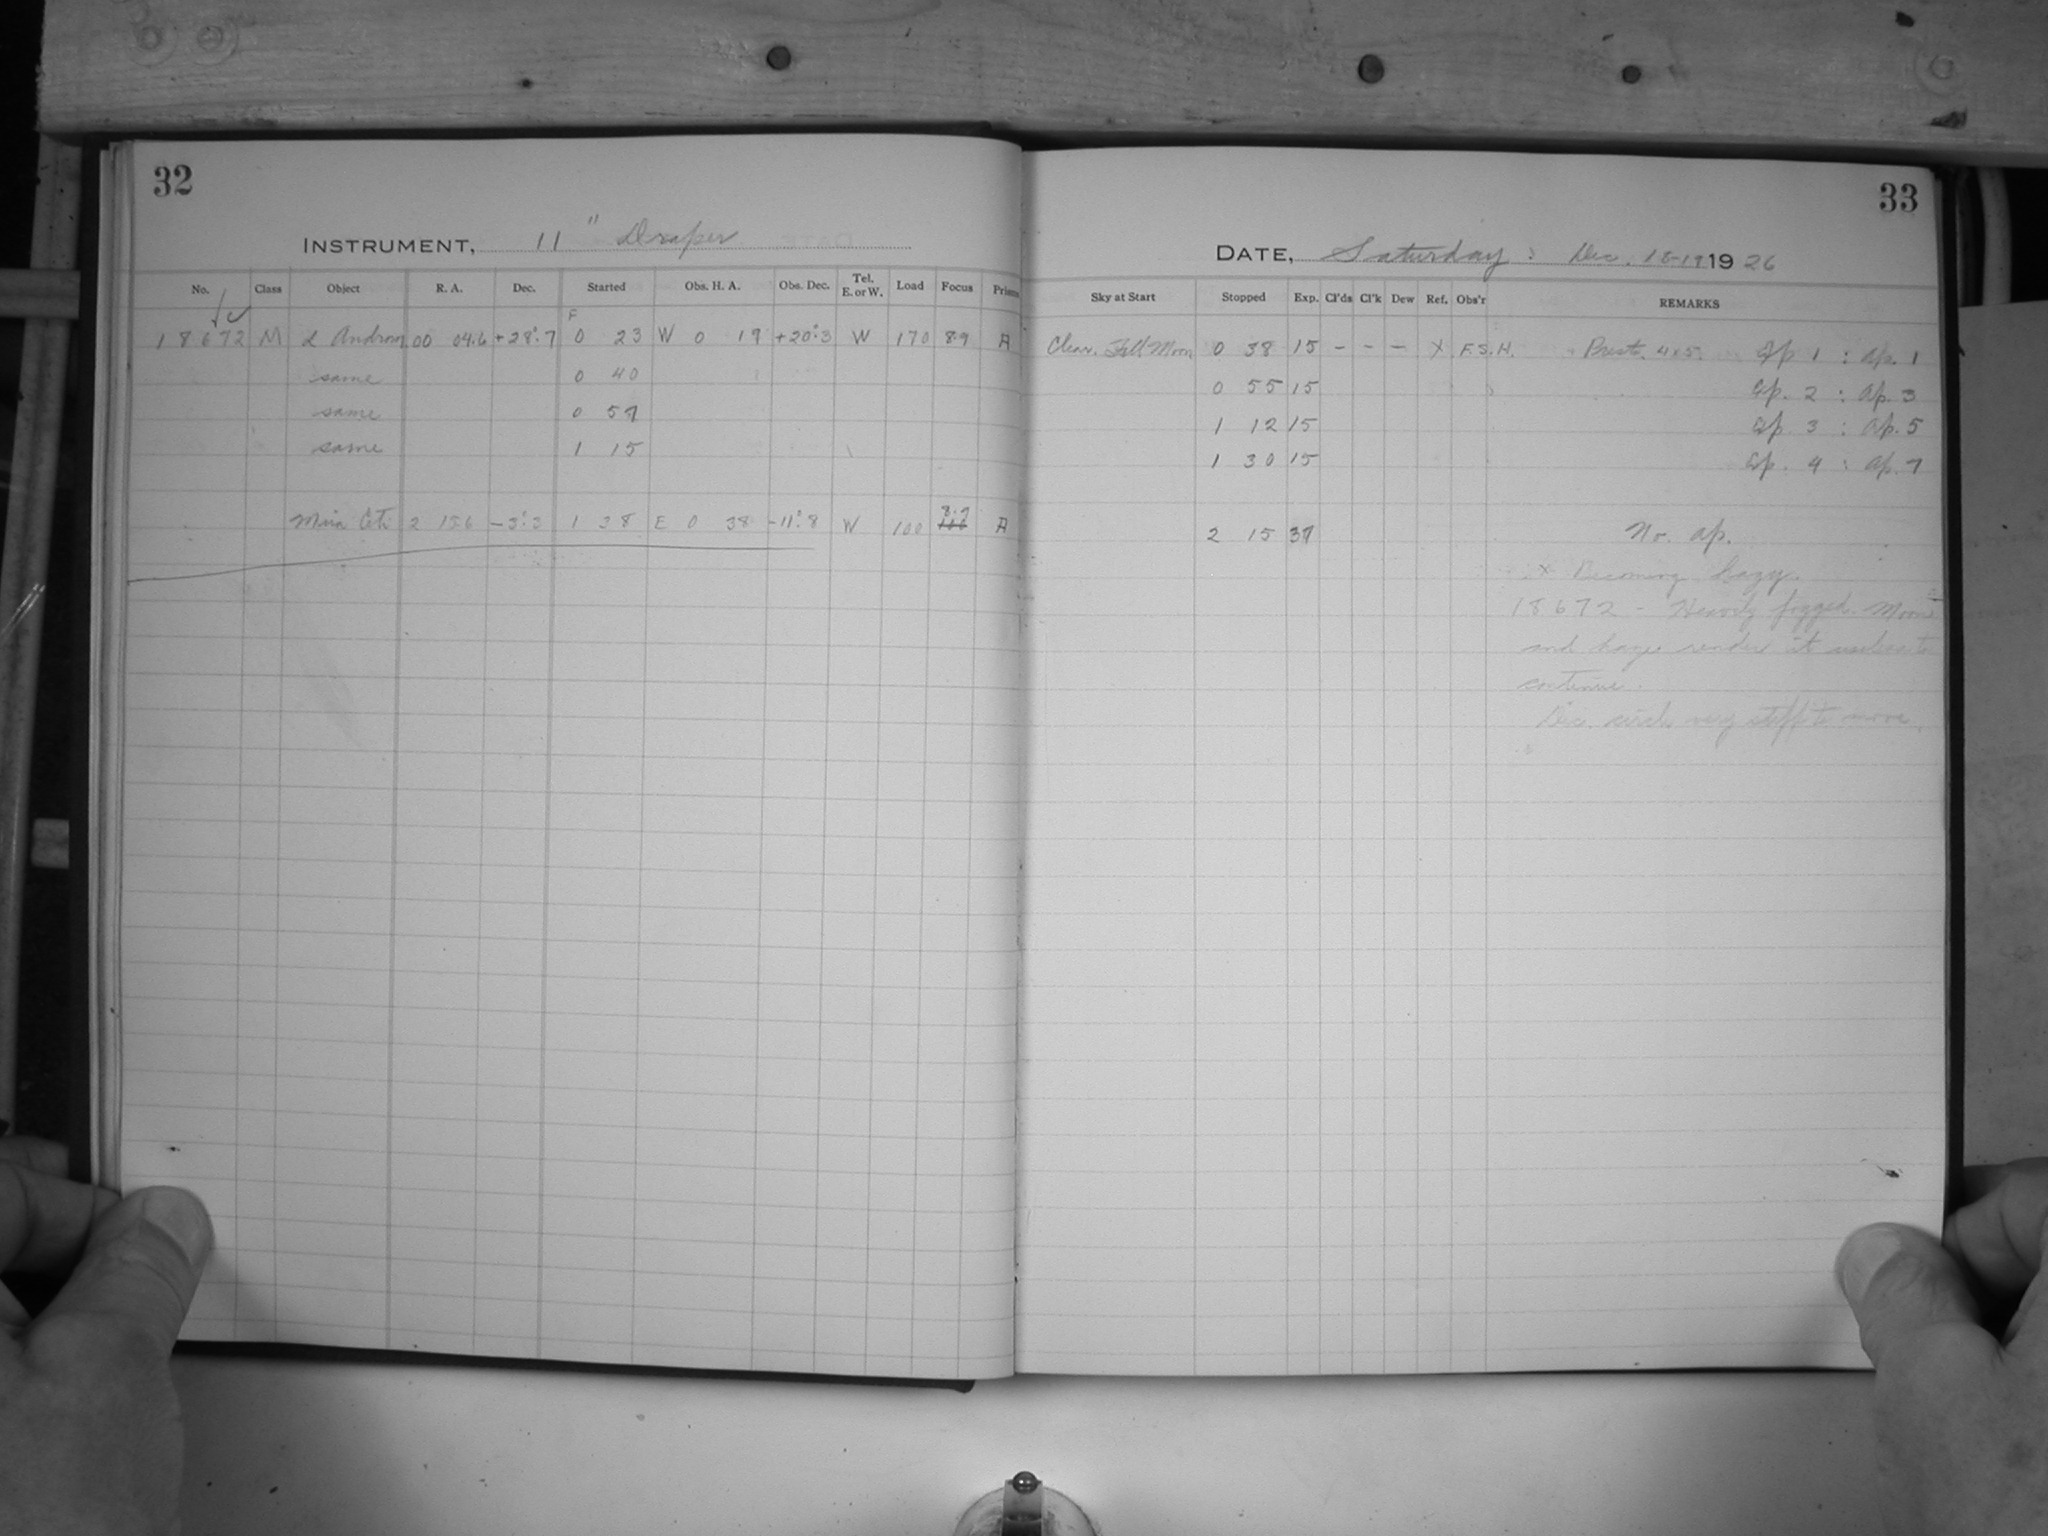 32
INSTRUMENT, 11" Draper
No. Class Object R. A. Dec. Started Obs. H. A. Obs. Dec. Tel. E. or W. Load Focus Prism
F
18672 M α Androm 00 04.6 +28°.7 0 23 W 0 19 +20°.3 W 170 8.9 A
same 0 40
same 0 57
same 1 15
Mira Ceti 2 15.6 -3°.3 1 38 E 0 38 -11°.8 W 100 8.9 A
33
DATE, Saturday : Dec. 18-19 1926
Sky at Start Stopped Exp. Cl'ds Cl'k Dew Ref. Obs'r REMARKS
Clear. Full Moon 0 38 15 - - - X F.S.H. Presto. 4x5. Sp. 1 : Ap. 1
0 55 15 Sp. 2 : Ap. 3
1 12 15 Sp. 3 : Ap. 5
1 30 15 Sp. 4 : Ap. 7
2 15 37 No. ap.
x Becoming hazy.
18672 - Heavily fogged. Moon
and haze render it useless to
continue.
Dec. circle very stiff to move.